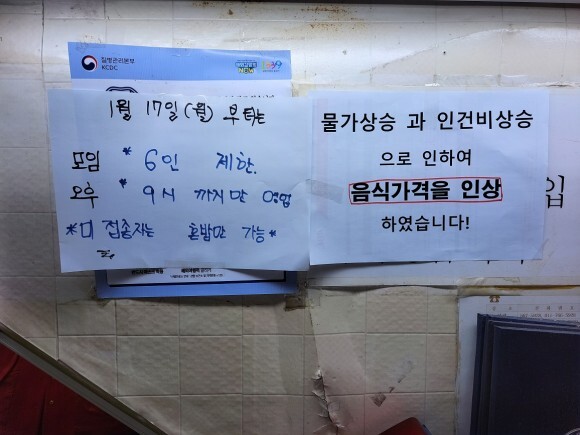 질병관리본부
KCDC
1월 17일(월) 부터는
모임 * 6인 제한.
오후 * 9시 까지만 영업
*미 접종자는 혼밥만 가능*
물가상승 과 인건비상승
으로 인하여
음식가격을 인상
하였습니다!
입